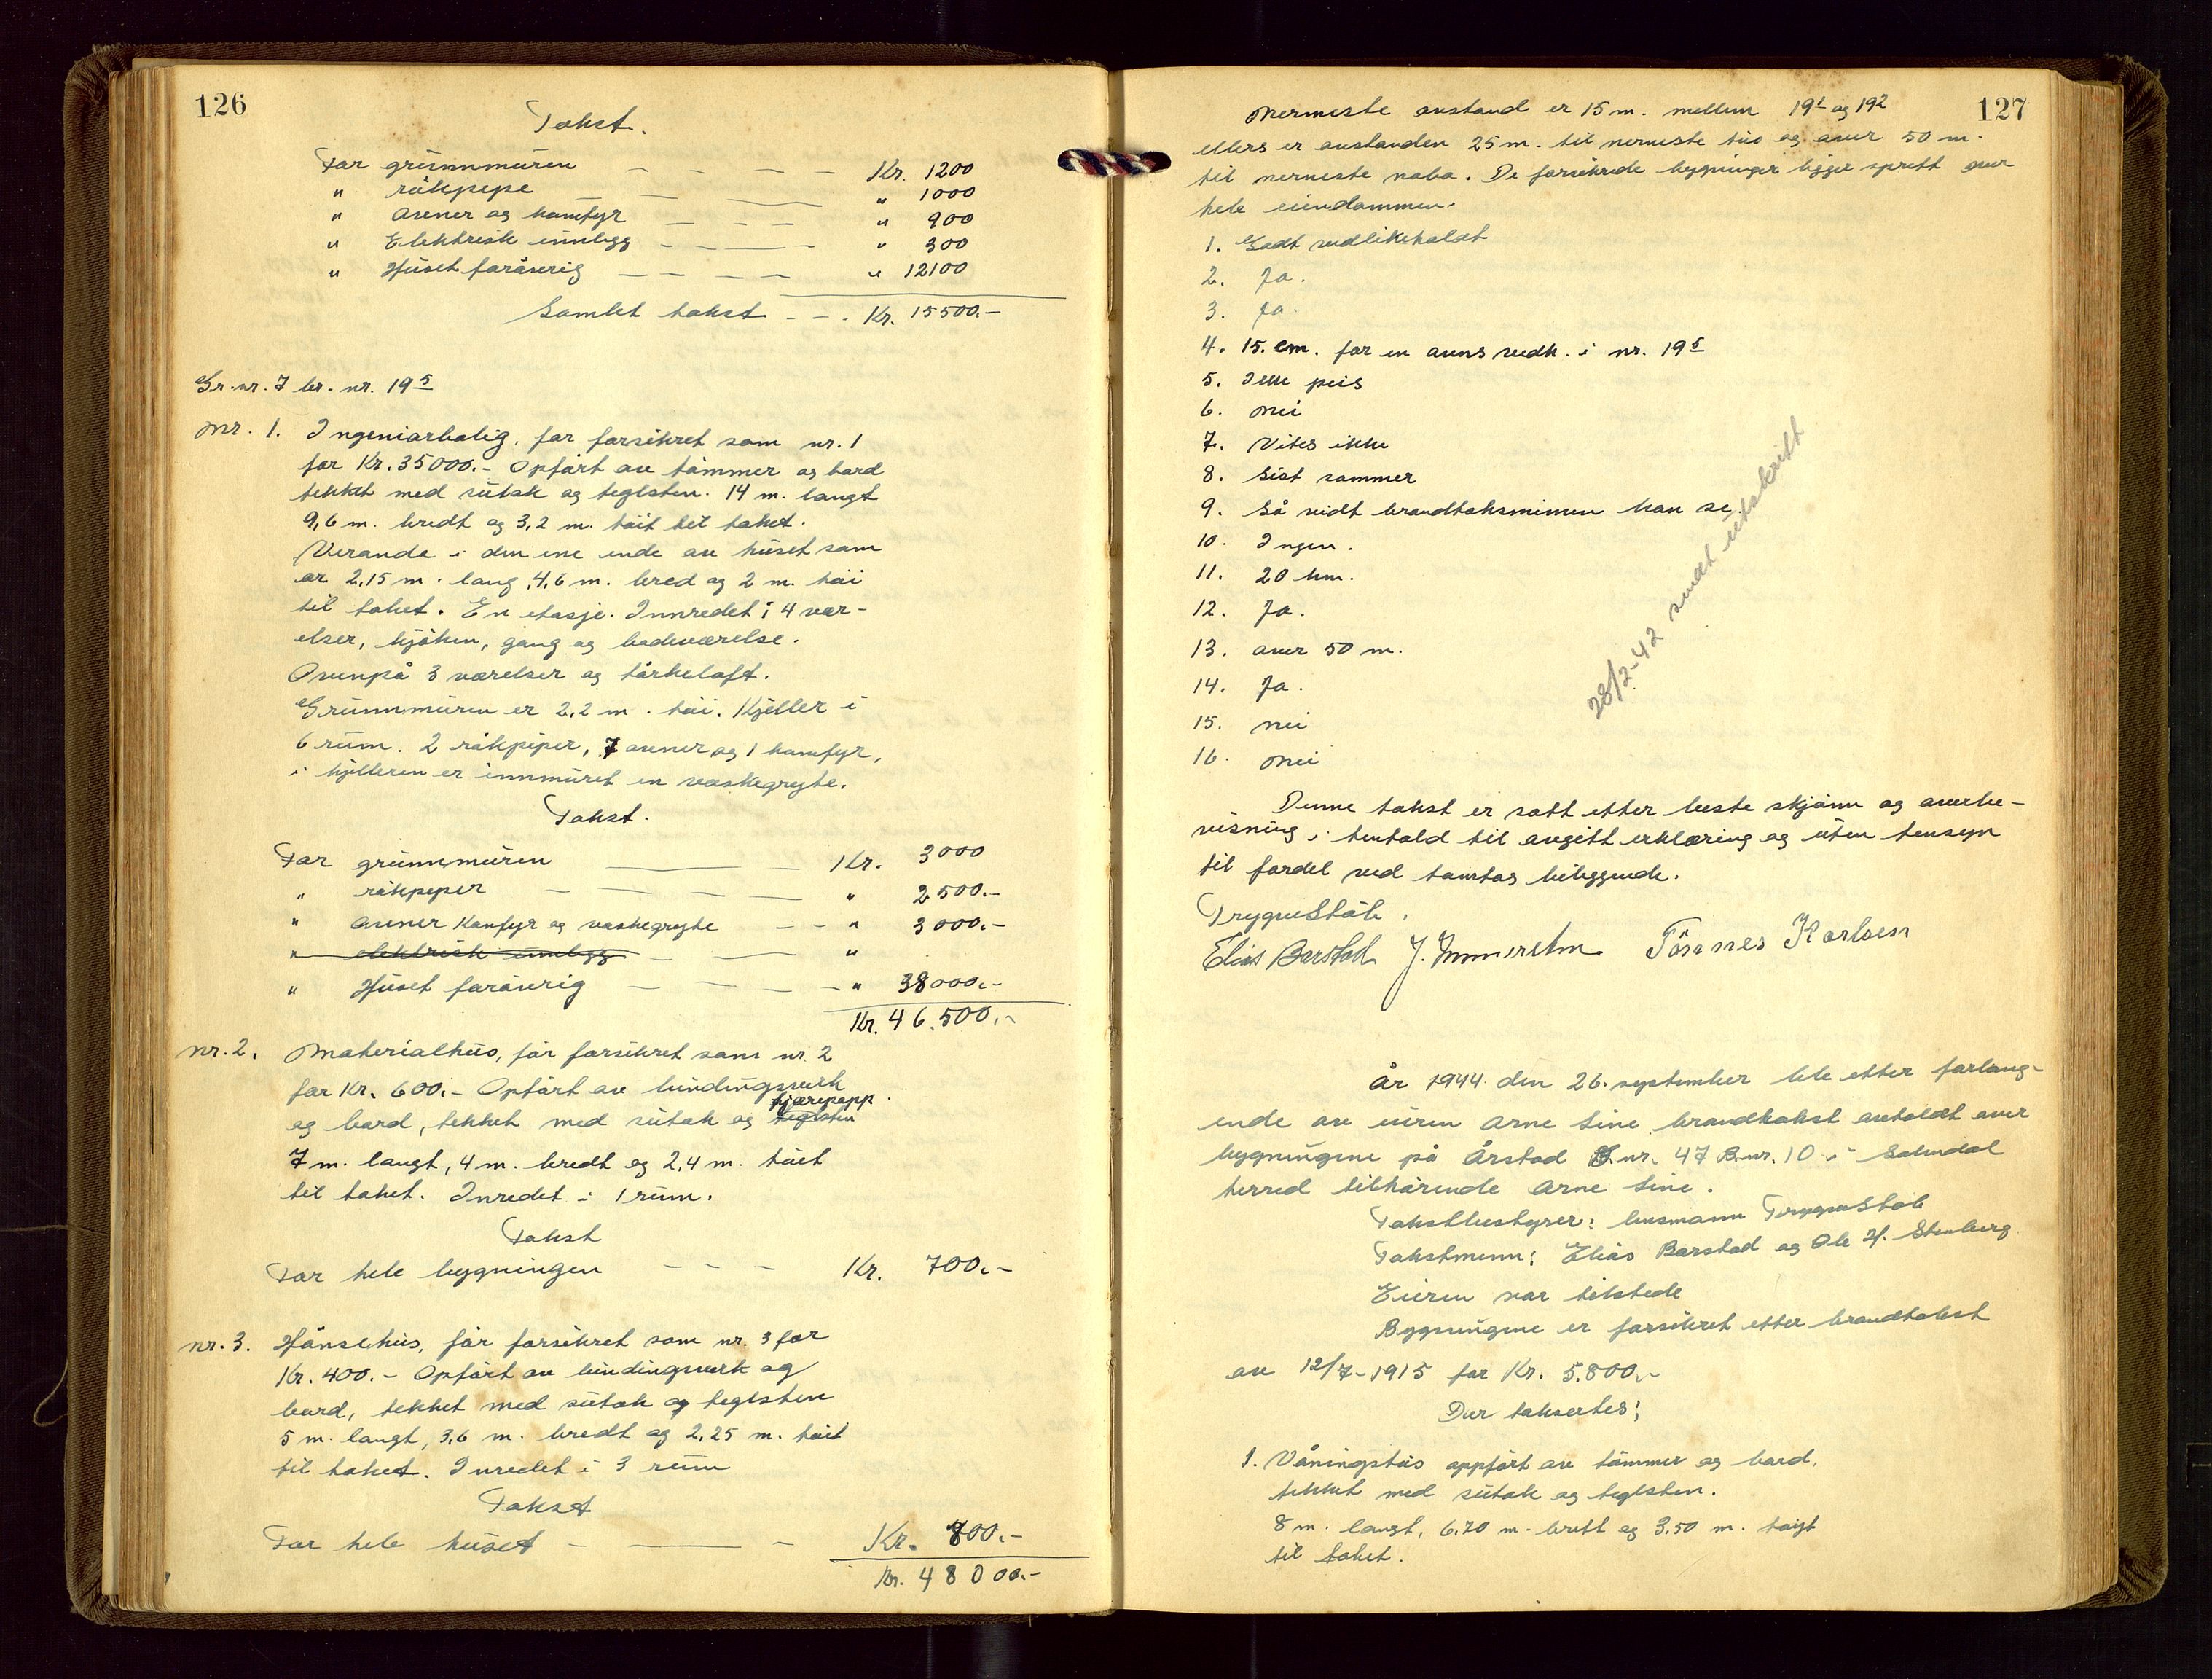 126
Takst.
For grunnmuren — — — — Kr. 1200
" rökpipe — — — " 1000
" ovner og komfyr — — — " 900
" Elektrisk innlegg — — — " 300
" Huset foröverig — — — — " 12100
Samlet takst - - . Kr. 15500.-
Gr. nr. 7 br. nr. 19 5
Nr. 1. Ingeniörbolig, för forsikret som nr. 1
for Kr. 35000.- Opfört av tömmer og bord
tekket med sutak og teglsten. 14 m. langt
9,6 m. bredt og 3,2 m. höit til taket.
Veranda i den ene ende av huset som
er 2,15 m. lang, 4,6 m. bred og 2 m. höi
til taket. En etasje. Innredet i 4 vær-
elser, kjöken, gang og badeværelse.
Ovenpå 3 værelser og törkeloft.
Grunnmuren er 2,2 m. höi. Kjeller i
6 rum. 2 rökpiper, 7 ovner og 1 komfyr,
i kjelleren er innmuret en vaskegryte.
Takst.
For grunnmuren — — Kr. 3000
" rökpiper — — — " 2500.-
" ovner Komfyr og vaskegryte — — " 3000.-
" elektrisk innlegg — — "
" Huset foröverig — — — — " 38000.-
Kr. 46.500.-
nr. 2. Materialhus, för forsikret som nr. 2
for Kr. 600.- Opfört av bindingsverk
tjærepapp.
og bord, tekket med sutak og teglsten
7 m. langt, 4 m. bredt og 2,4 m. höit
til taket. Inredet i 1 rum.
Takst
For hele bygningen — — — Kr. 700.-
nr. 3. Hönsehus, för forsikret som nr. 3 for
Kr. 400.- Opfört av bindingsverk og
bord, tekket med sutak og teglsten
5 m. langt, 3,6 m. bredt og 2,25 m. höit
til taket. Inredet i 3 rum
Takst
For hele huset — — — Kr. 800.-
Kr. 48000.-
127
Nermeste avstand er 15 m. mellem 19 1 og 19 2
ellers er avstanden 25 m. til nermeste hus og over 50 m.
til nermeste nabo. De forsikrede bygninger ligger spredt over
hele eiendommen.
1. Godt vedlikeholdt
2. Ja.
3. Ja.
4. 15. cm. for en ovns vedk. i nr. 19 5
5. Ikke peis
6. Nei
7. Vites ikke
8. Sist sommer
9. Så vidt brandtakstmennen kan se.
10. Ingen.
11. 20 km.
12. Ja.
13. over 50 m.
14. Ja.
15. nei
16. Nei
28/2-42 sendt utskrift
Denne takst er satt etter beste skjönn og overbe-
visning i henhold til avgitt erklæring og uten hensyn
til fordel ved tomtas beliggende.
Trygve Stöle.
Elias Barstad J. Immerstein Tönnes Karlsen
År 1944 den 26. september ble etter forlang-
ende av eieren Arne Sine brandtakst avholdt over
bygningene på Årstad G. nr. 47 B. nr. 10 i Sokndal
herred tilhörende Arne Sine.
Takstbestyrer: lensmann Trygve Stöle
Takstmenn: Elias Barstad og Ole H. Stenberg
Eieren var tilstede
Bygningene er forsikret etter brandtakst
av 12/7-1915 for Kr. 5.800.-
Der takseres;
1. Våningshus oppfört av tömmer og bord.
tekket med sutak og teglsten.
8 m. langt, 6,70 m. brett og 3,50 m. höigt
til taket.